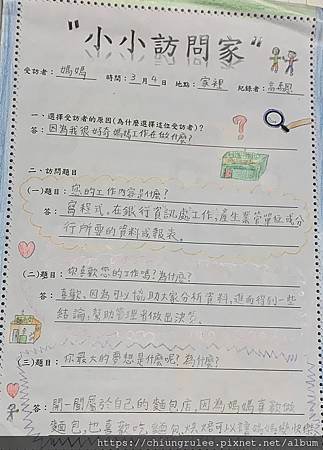 "小小訪問家"
受訪者：媽媽 時間：3月4日 地點：家裡 紀錄者：高
一、選擇受訪者的原因(為什麼選擇這位受訪者)?
答：因為我很好奇媽媽工作在做什麼?
二、訪問題目
(一)題目：您的工作內容是什麼?
答：寫程式，在銀行資訊處工作，產生業管單位或分
行所要的資料或報表。
(二)題目：你喜歡您的工作嗎?為什麼?
答：喜歡，因為可以協助大家分析資料，進而得到一些
結論，幫助管理者做出決策。
(三)題目：你最大的夢想是什麼呢?為什麼?
答：開一間屬於自己的麵包店，因為媽媽喜歡做
麵包，也喜歡吃，麵包烘焙可以讓媽媽變快樂
https://chiungrulee.pixnet.net/album